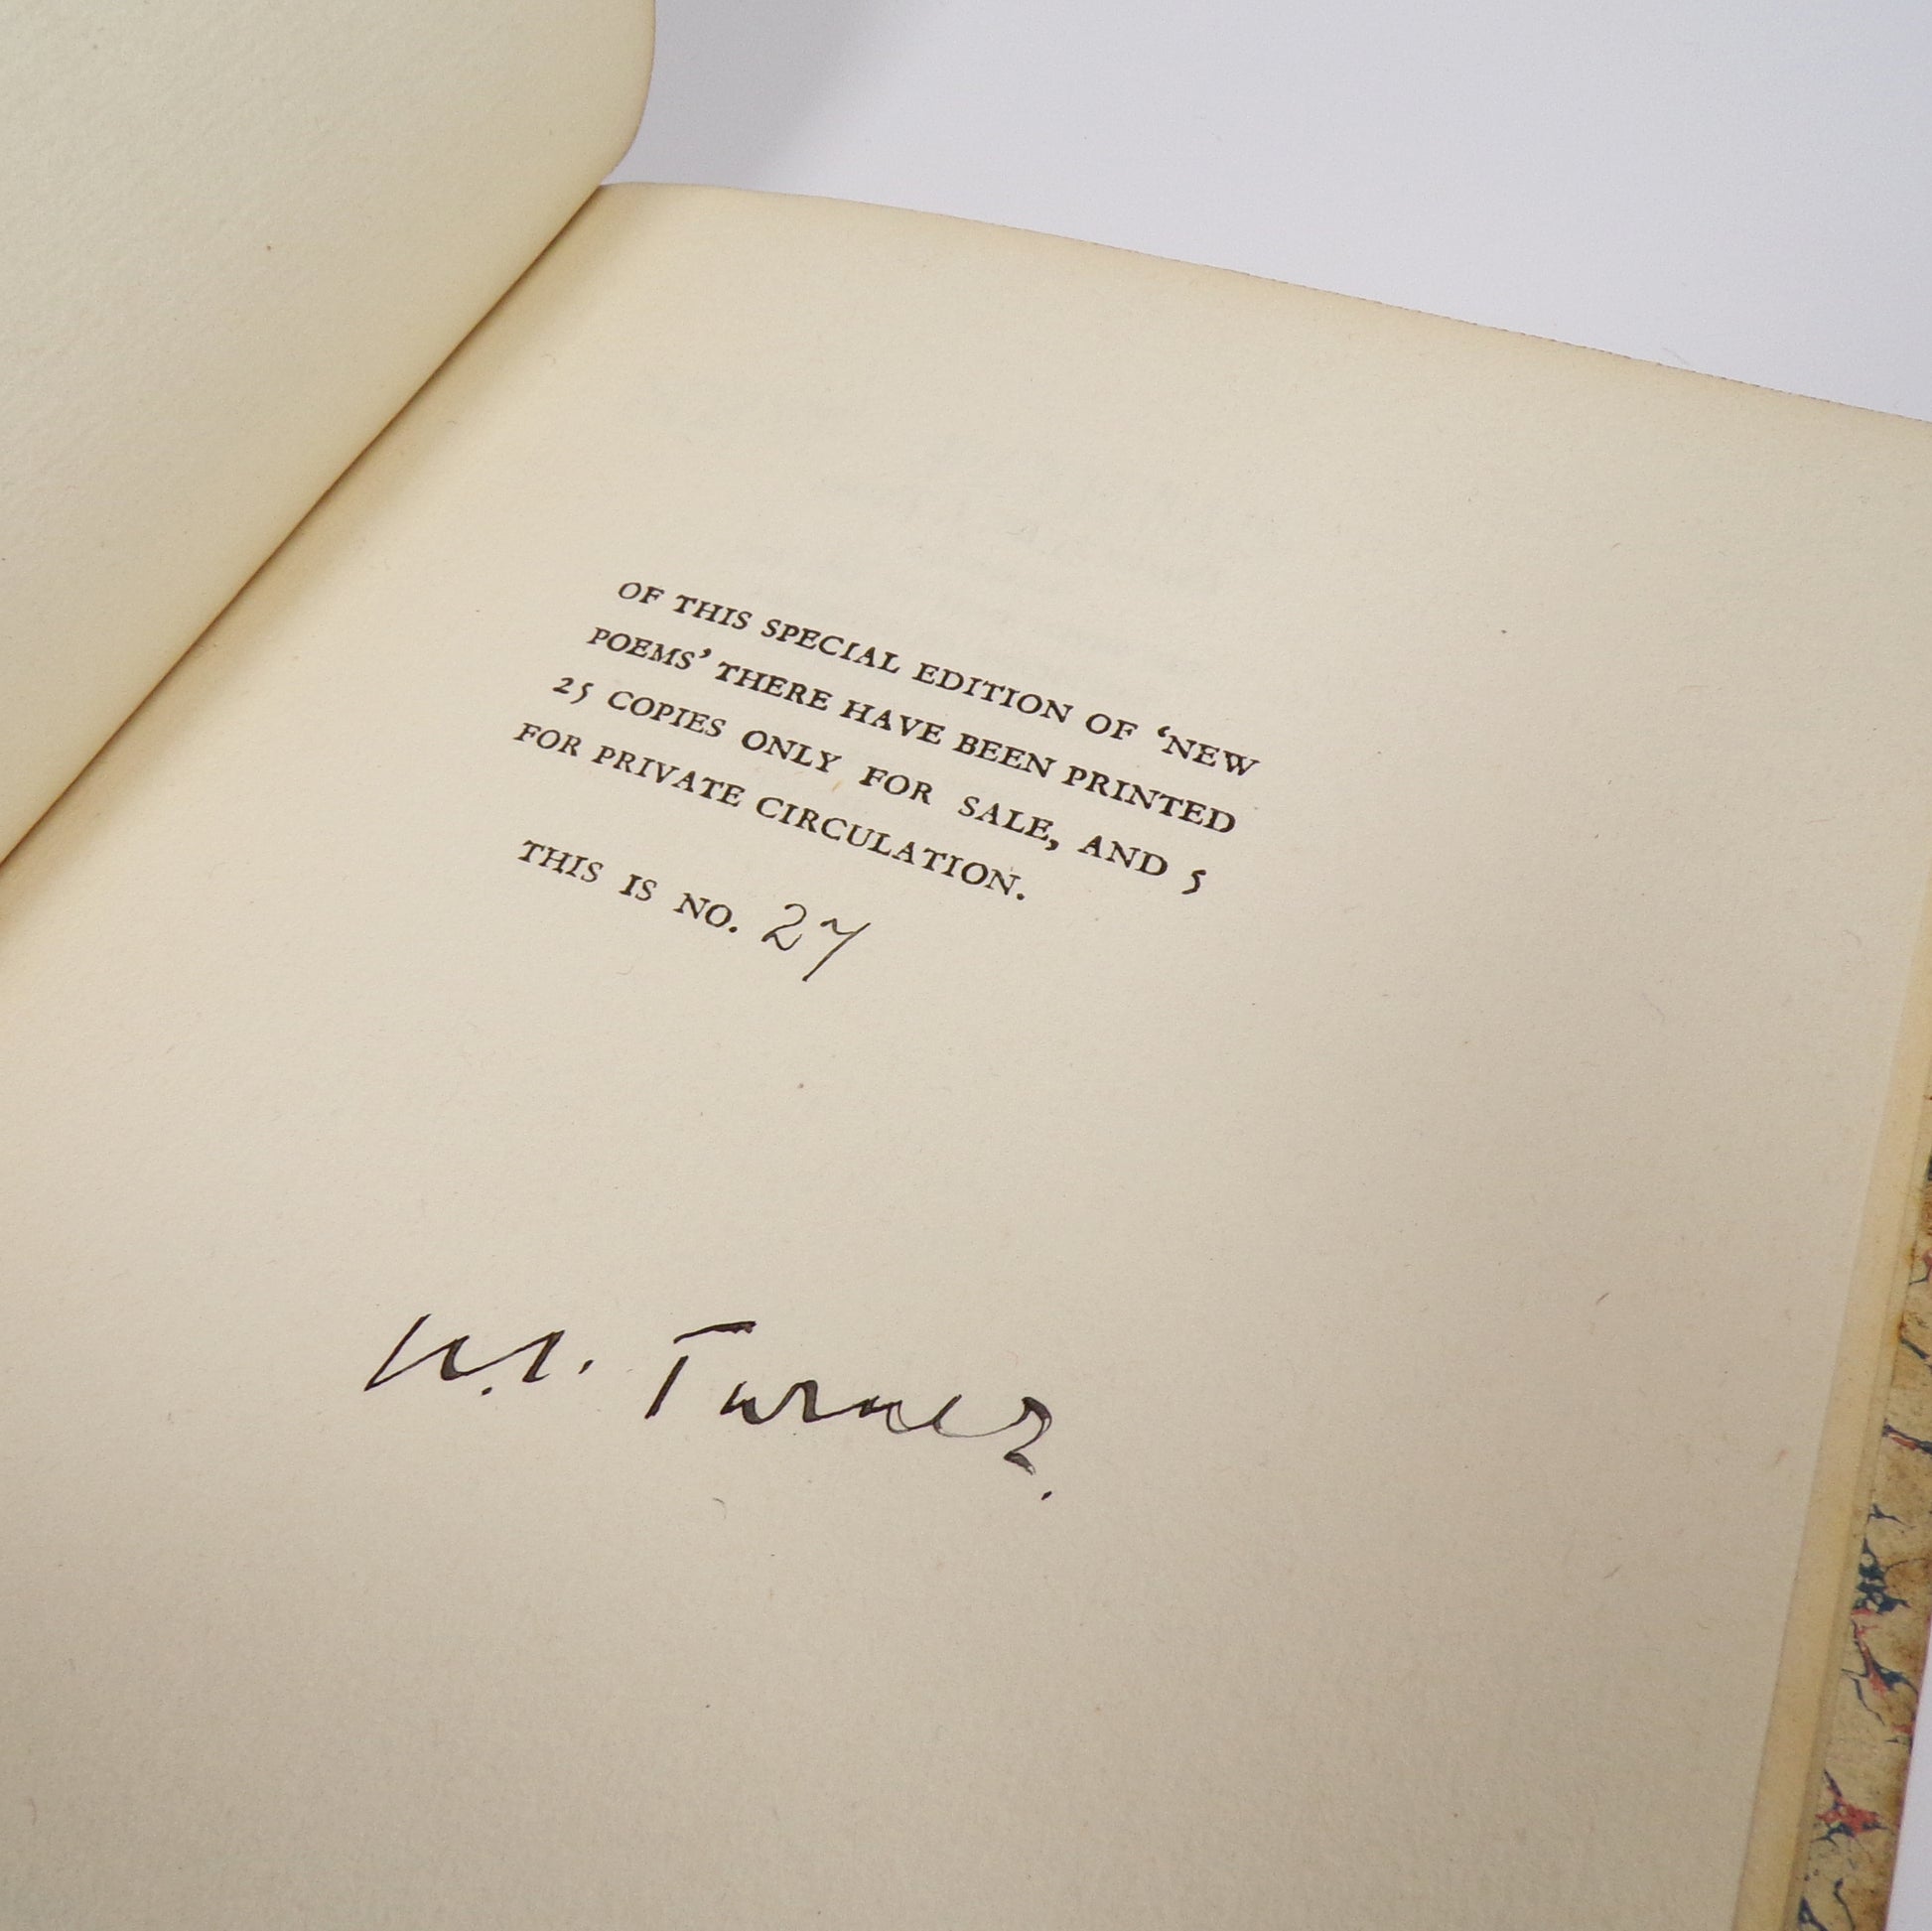 OF THIS SPECIAL EDITION OF ‘NEW
POEMS’ THERE HAVE BEEN PRINTED
25 COPIES ONLY FOR SALE, AND 5
FOR PRIVATE CIRCULATION.
THIS IS NO. 27
Turner.